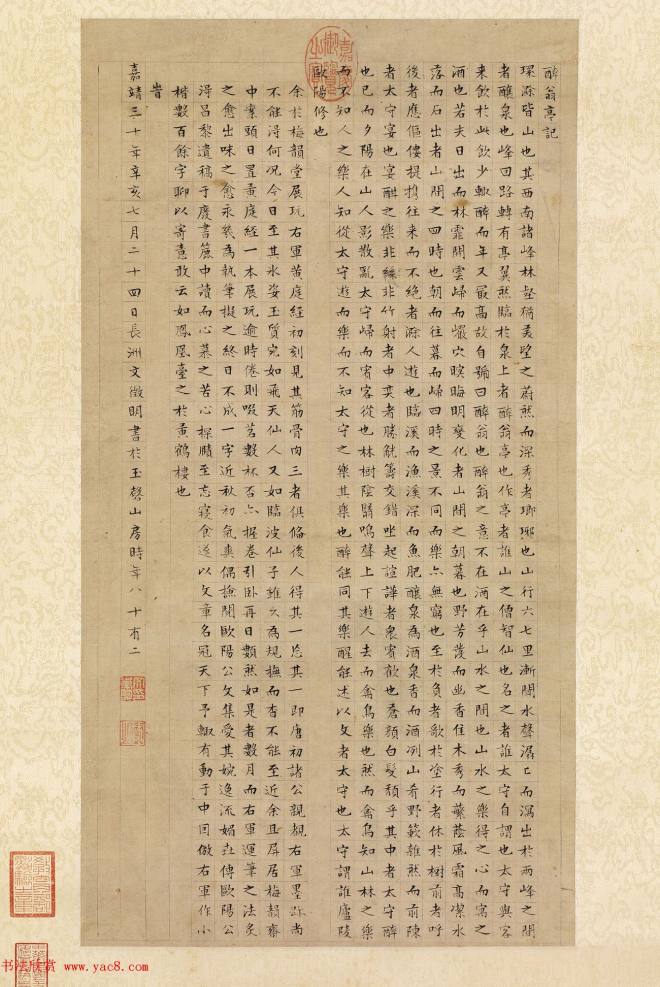 醉翁亭記
環滁皆山也其西南諸峰林壑猶美望之蔚然而深秀者瑯琊也山行六七里漸聞水聲潺〻而瀉出於兩峰之間
者釀泉也峰回路轉有亭翼然臨於泉上者醉翁亭也作亭者誰山之僧智仙也名之者誰太守自謂也太守與客
來飲於此飲少輒醉而年又最高故自號曰醉翁也醉翁之意不在酒在乎山水之間也山水之樂得之心而寓之
酒也若夫日出而林霏開雲歸而巖穴暝晦明變化者山間之朝暮也野芳發而幽香佳木秀而繁蔭風霜高潔水
落而石出者山間之四時也朝而往暮而歸四時之景不同而樂亦無窮也至於負者歌於塗行者休於樹前者呼
後者應傴僂提攜往來而不絕者滁人遊也臨溪而漁溪深而魚肥釀泉為酒泉香而酒冽山肴野蔌雜然而前陳
者太守宴也宴酣之樂非絲非竹射者中奕者勝觥籌交錯坐起諠譁者眾賓歡也蒼顏白髮頹乎其中者太守醉
也已而夕陽在山人影散亂太守歸而賓客從也林樹陰翳鳴聲上下遊人去而禽鳥樂也然而禽鳥知山林之樂
而不知人之樂人知從太守遊而樂而不知太守之樂其樂也醉能同其樂醒能述以文者太守也太守謂誰廬陵
歐陽修也
余於梅韻堂展玩右軍黃庭經初刻見其筋骨肉三者俱備後人得其一忘其一即唐初諸公親覩右軍墨跡尚
不能得何況今日至其水姿玉質宛如飛天仙人又如臨波仙子雖久為規撫而杳不能至近余且屏居梅韻齋
中案頭日置黃庭經一本展玩逾時倦則啜茗數杯否亦握卷引臥再日顛然如是者數月而右軍運筆之法炙
之愈出味之愈永爰為執筆擬之終日不成一字近秋初氣爽偶撫閱歐陽公文集愛其婉逸流媚壵傳歐陽公
得昌黎遺稿于廢書簏中讀而心慕之苦心探賾至忘寢食遂以文章名冠天下予輒有動于中因倣右軍作小
楷數百餘字聊以寄意敢云如鳳凰臺之於黃鶴樓也
旹
嘉靖三十年辛亥七月二十四日長洲文徵明書於玉磬山房時年八十有二
书法欣赏 www.yac8.com